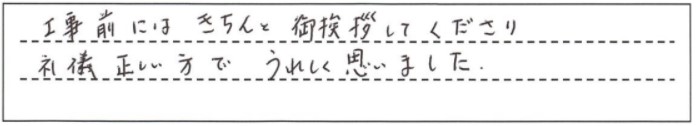 工事前には きちんと 御挨拶してくださり
礼儀正しい方で うれしく思いました.